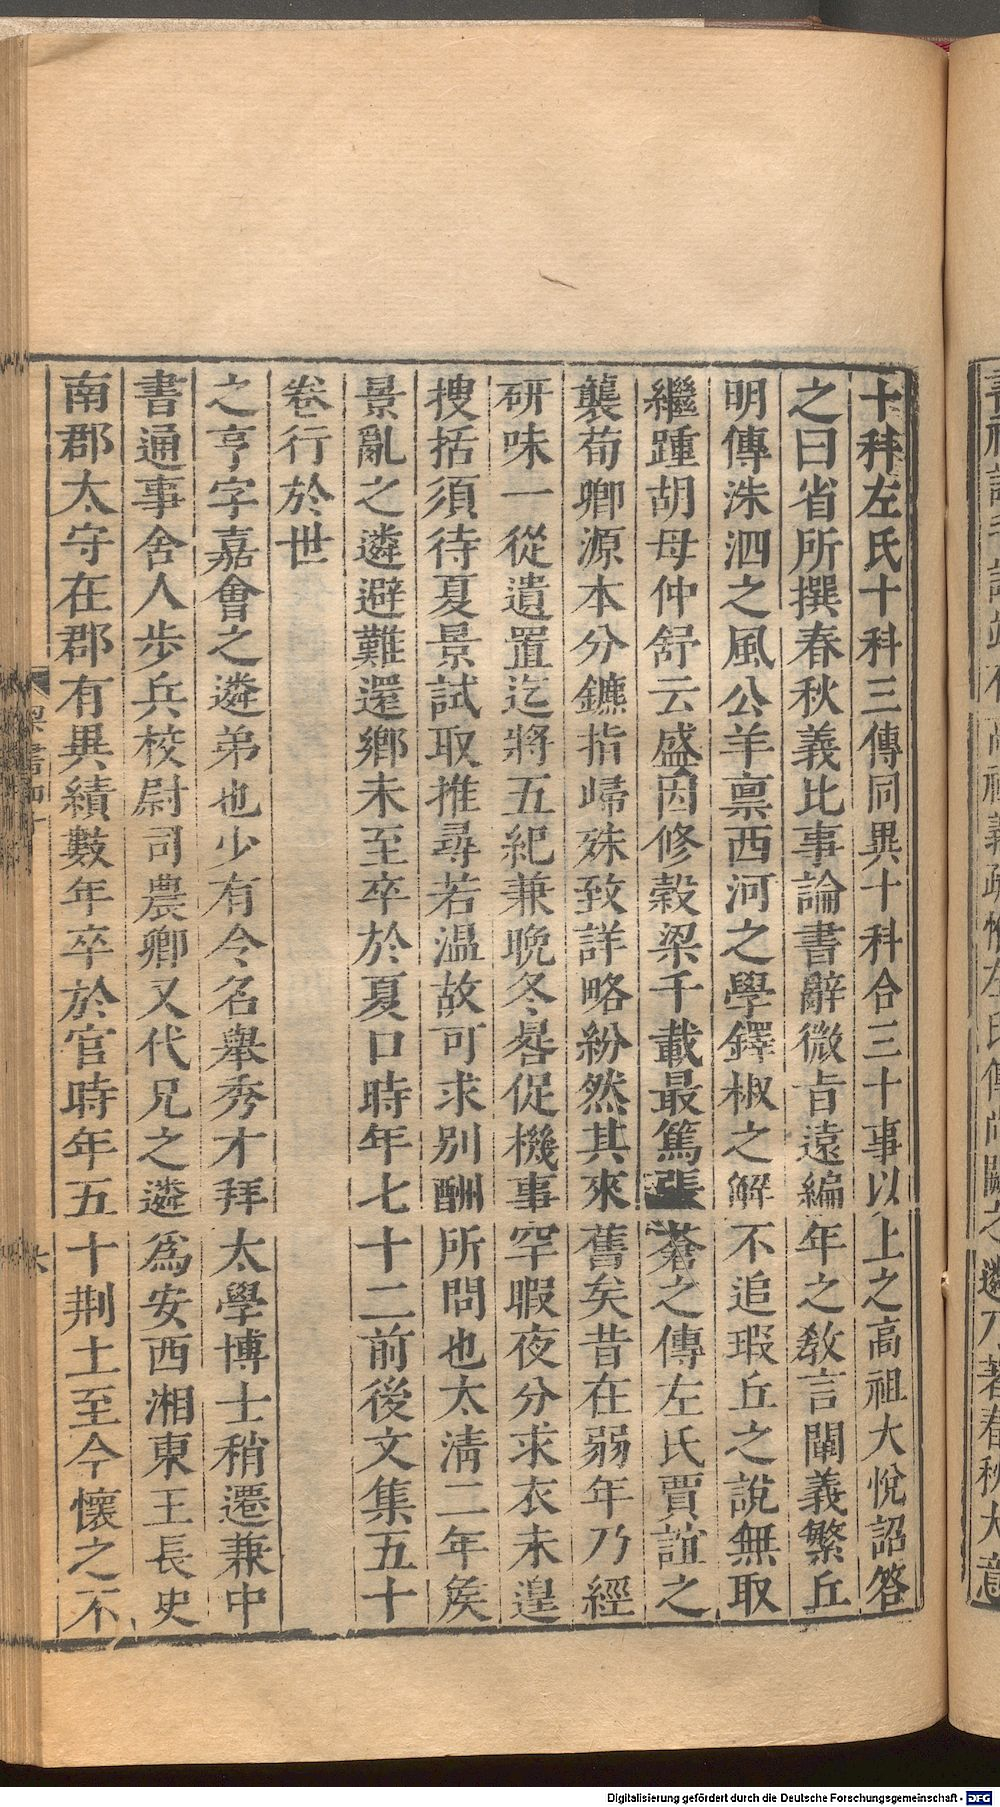 十科左氏十科三傳同異十科合三十事以上之高祖大悅詔答
之曰省所撰春秋義比事論書辭微旨遠編年之敎言闡義繁丘
明傳洙泗之風公羊禀西河之學鐸椒之解不追瑕丘之說無取
繼踵胡母仲舒云盛因修穀梁千載最篤張蒼之傳左氏賈誼之
襲荀卿源本分鑣指歸殊致詳略紛然其來舊矣昔在弱年乃經
研味一從遺置迄將五紀兼晚冬晷促機事罕暇夜分求衣未遑
搜括須待夏景試取推尋若温故可求别酬所問也太淸二年矦
景亂之遴避難還鄉未至卒於夏口時年七十二前後文集五十
卷行於世
之亨字嘉會之遴弟也少有令名舉秀才拜太學博士稍遷兼中
書通事舍人步兵校尉司農卿又代兄之遴爲安西湘東王長史
南郡太守在郡有異績數年卒於官時年五十荆土至今懷之不
梁書
遴乃著春秋大意
Digitalisierung gefördert durch die Deutsche Forschungsgemeinschaft - DFG